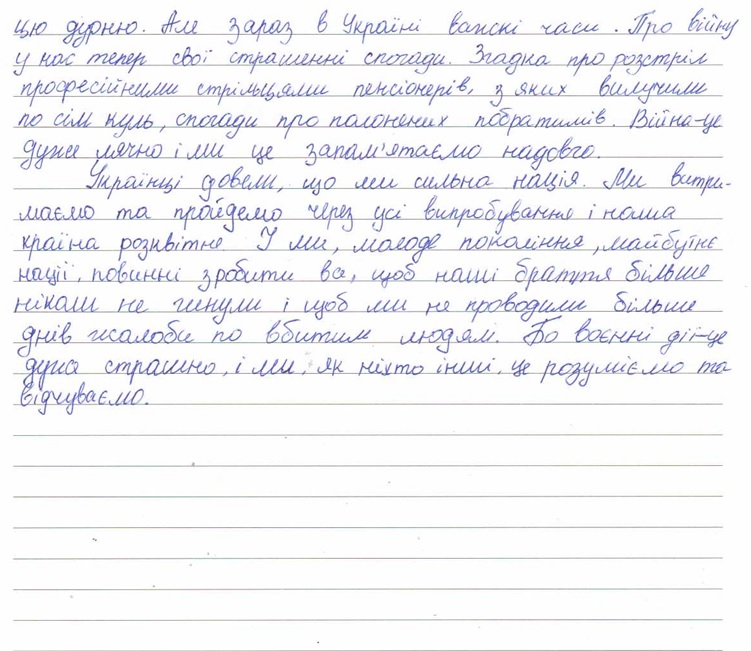 цю дурню. Але зараз в Україні важкі часи. Про війну
у нас тепер свої страшенні спогади. Згадка про розстріл
професійними стрільцями пенсіонерів, з яких вилучили
по сім куль, спогади про полонених побратимів. Війна-це
дуже лячно і ми це запам'ятаємо надовго.
Українці довели, що ми сильна нація. Ми витри-
маємо та пройдемо через усі випробування і наша
країна розквітне. І ми, молоде покоління, майбутнє
нації, повинні зробити все, щоб наші браття більше
ніколи не гинули і щоб ми не проводили більше
днів жалоби по вбитим людям. Бо воєнні дії-це
дуже страшно, і ми, як ніхто інші, це розуміємо та
відчуваємо.